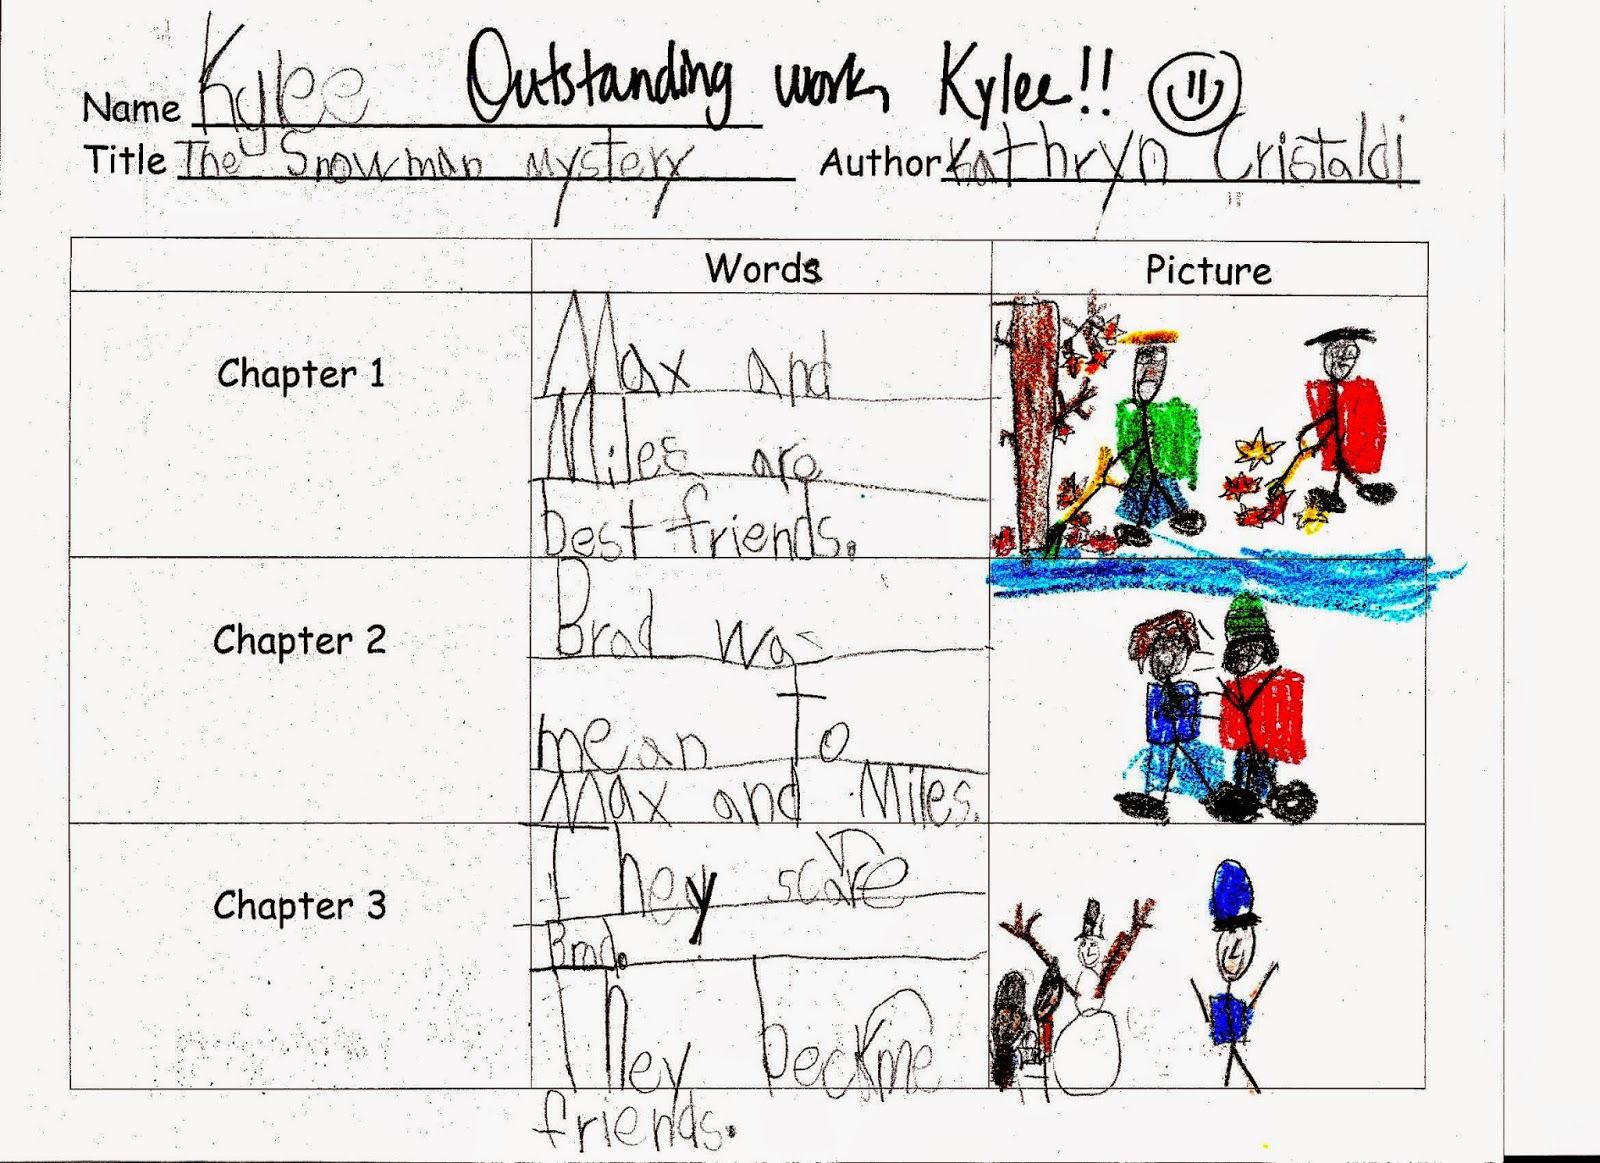 Name Kylee Outstanding work, Kylee!!
Title The Snowman mystery Author Kathryn Cristaldi
Words Picture
Chapter 1
Max and
Miles are
best friends.
Chapter 2
Brad was
mean To
Max and Miles.
Chapter 3
They scare
Brad.
They beckme
friends.